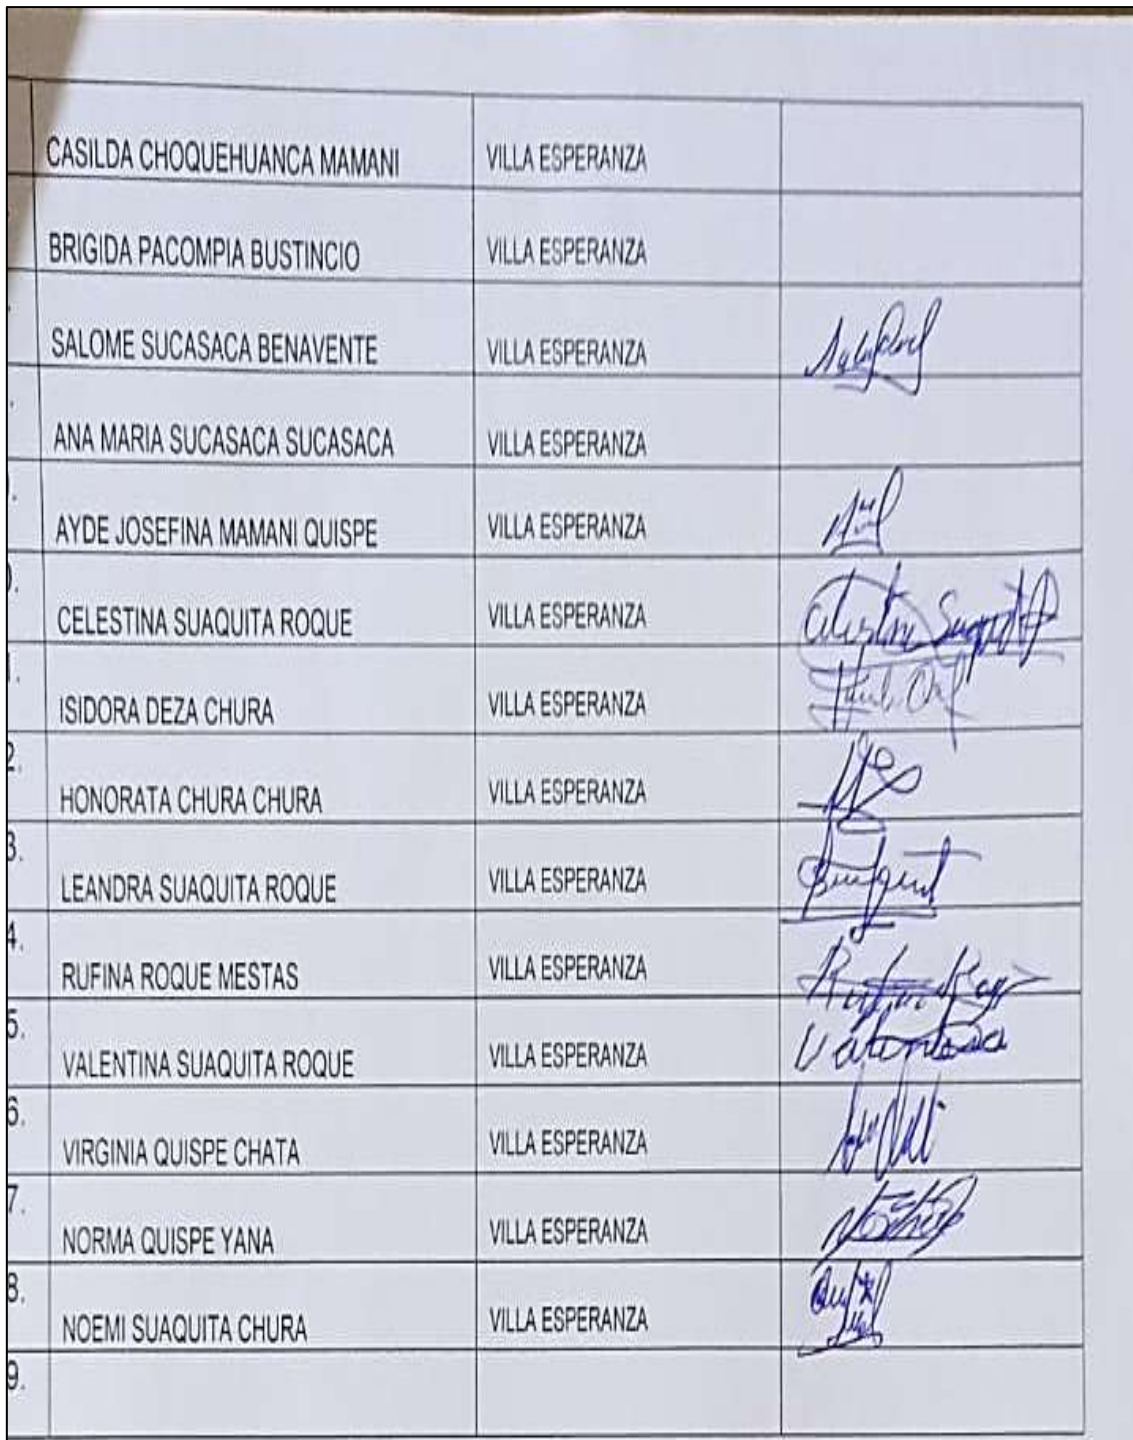 CASILDA CHOQUEHUANCA MAMANI VILLA ESPERANZA
BRIGIDA PACOMPIA BUSTINCIO VILLA ESPERANZA
SALOME SUCASACA BENAVENTE VILLA ESPERANZA
ANA MARIA SUCASACA SUCASACA VILLA ESPERANZA
AYDE JOSEFINA MAMANI QUISPE VILLA ESPERANZA
CELESTINA SUAQUITA ROQUE VILLA ESPERANZA
ISIDORA DEZA CHURA VILLA ESPERANZA
2. HONORATA CHURA CHURA VILLA ESPERANZA
3. LEANDRA SUAQUITA ROQUE VILLA ESPERANZA
4. RUFINA ROQUE MESTAS VILLA ESPERANZA
5. VALENTINA SUAQUITA ROQUE VILLA ESPERANZA
6. VIRGINIA QUISPE CHATA VILLA ESPERANZA
7. NORMA QUISPE YANA VILLA ESPERANZA
8. NOEMI SUAQUITA CHURA VILLA ESPERANZA
9.